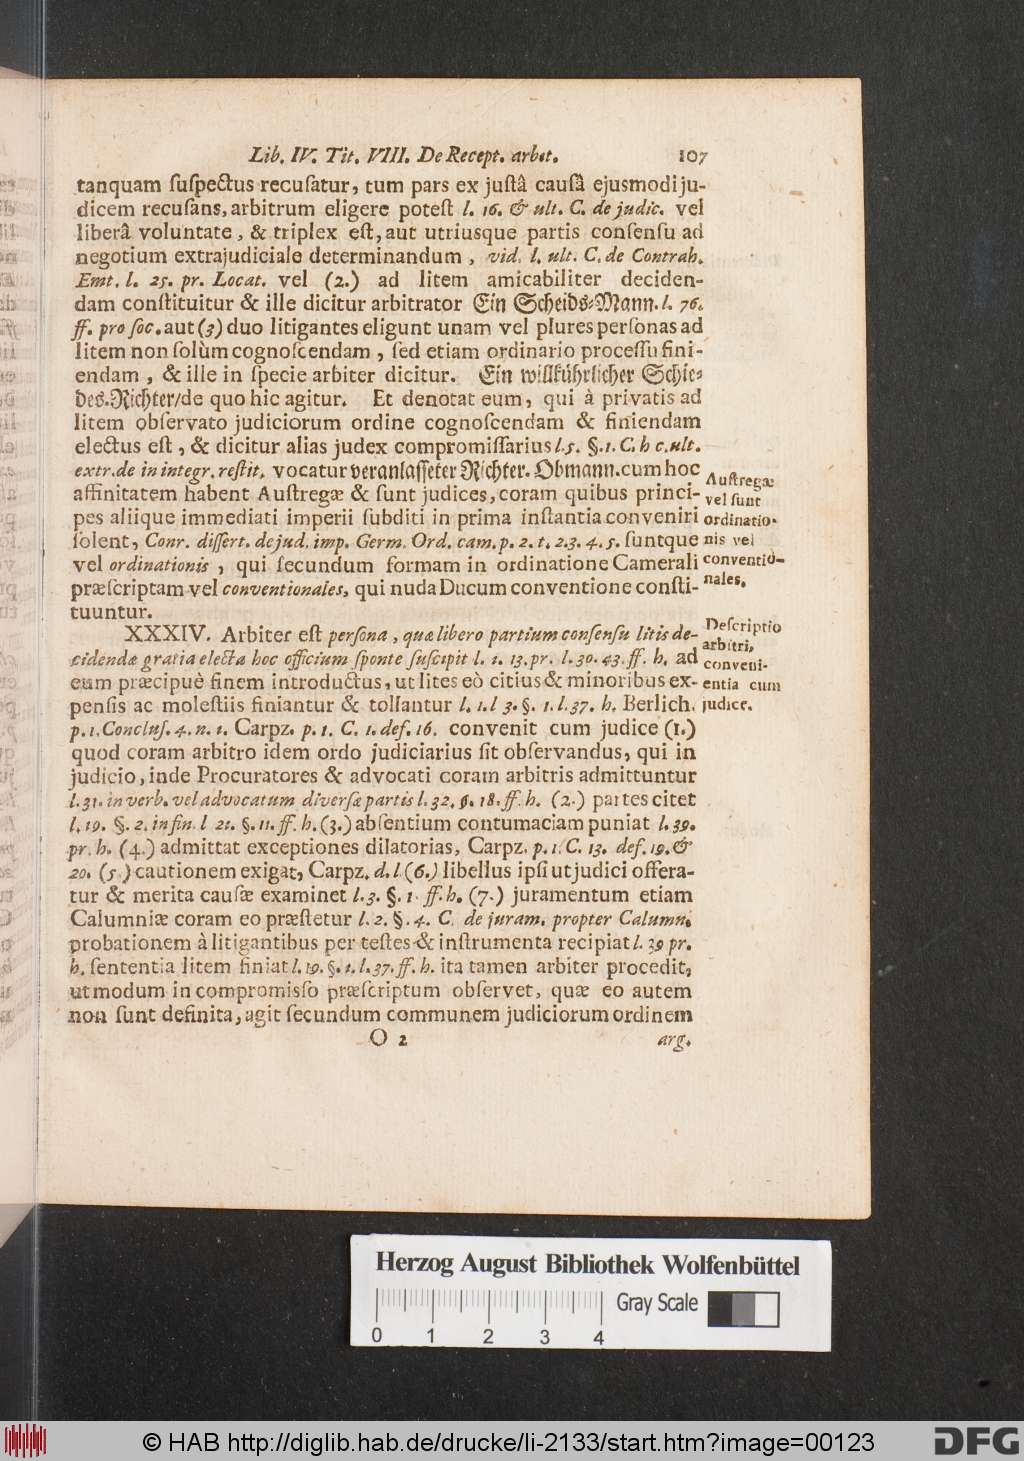 Lib. IV. Tit. VIII. De Recept. arbit. 107
tanquam ſuſpectus recuſatur, tum pars ex juſtâ cauſâ ejusmodi ju-
dicem recuſans, arbitrum eligere poteſt l. 16. & ult. C. de judic. vel
liberâ voluntate, & triplex eſt, aut utriusque partis conſenſu ad
negotium extrajudiciale determinandum, vid. l. ult. C. de Contrah.
Emt. l. 25. pr. Locat. vel (2.) ad litem amicabiliter deciden-
dam conſtituitur & ille dicitur arbitrator Ein Scheids-Mann. l. 76.
ff. pro ſoc. aut (3) duo litigantes eligunt unam vel plures perſonas ad
litem non ſolùm cognoſcendam, ſed etiam ordinario proceſſu fini-
endam, & ille in ſpecie arbiter dicitur. Ein willkührlicher Schie-
des-Richter/de quo hic agitur. Et denotat eum, qui à privatis ad
litem obſervato judiciorum ordine cognoſcendam & finiendam
electus eſt, & dicitur alias judex compromiſſarius l. 5. §. 1. C. h c. ult.
extr. de in integr. reſtit. vocatur veranlaſſeter Richter. Obmann. cum hoc
affinitatem habent Auſtregæ & ſunt judices, coram quibus princi-
pes aliique immediati imperii ſubditi in prima inſtantia conveniri
ſolent, Conr. diſſert. de jud. imp. Germ. Ord. cam. p. 2. t. 2. 3. 4. 5. ſuntque
vel ordinationis, qui ſecundum formam in ordinatione Camerali
præſcriptam vel conventionales, qui nuda Ducum conventione conſti-
tuuntur.
Auſtregæ
vel ſunt
ordinatio-
nis vel
conventio-
nales.
XXXIV. Arbiter eſt perſona, quæ libero partium conſenſu litis de-
cidendæ gratia electa hoc officium ſponte ſuſcipit l. 1. 13. pr. l. 30. 43. ff. h. ad
eum præcipuè finem introductus, ut lites eò citius & minoribus ex-
penſis ac moleſtiis finiantur & tollantur l. 1. l 3. §. 1. l. 37. h. Berlich.
p. 1. Concluſ. 4. n. 1. Carpz. p. 1. C. 1. def. 16. convenit cum judice (1.)
quod coram arbitro idem ordo judiciarius ſit obſervandus, qui in
judicio, inde Procuratores & advocati coram arbitris admittuntur
l. 31. in verb. vel advocatum diverſæ partis l. 32. §. 18. ff. h. (2.) partes citet
l. 19. §. 2. in fin. l 21. §. 11. ff. h. (3.) abſentium contumaciam puniat l. 39.
pr. h. (4.) admittat exceptiones dilatorias, Carpz. p. 1. C. 13. def. 19. &
20. (5.) cautionem exigat, Carpz. d. l (6.) libellus ipſi ut judici offera-
tur & merita cauſæ examinet l. 3. §. 1. ff. h. (7.) juramentum etiam
Calumniæ coram eo præſtetur l. 2. §. 4. C. de juram. propter Calumn.
probationem à litigantibus per teſtes & inſtrumenta recipiat l. 39 pr.
h. ſententia litem finiat l. 19. §. 1. l. 37. ff. h. ita tamen arbiter procedit,
ut modum in compromiſſo præſcriptum obſervet, quæ eo autem
non ſunt definita, agit ſecundum communem judiciorum ordinem
Deſcriptio
arbitri,
conveni-
entia cum
judice.
O 2 arg.
Herzog August Bibliothek Wolfenbüttel
Gray Scale
0 1 2 3 4
© HAB http://diglib.hab.de/drucke/li-2133/start.htm?image=00123
DFG